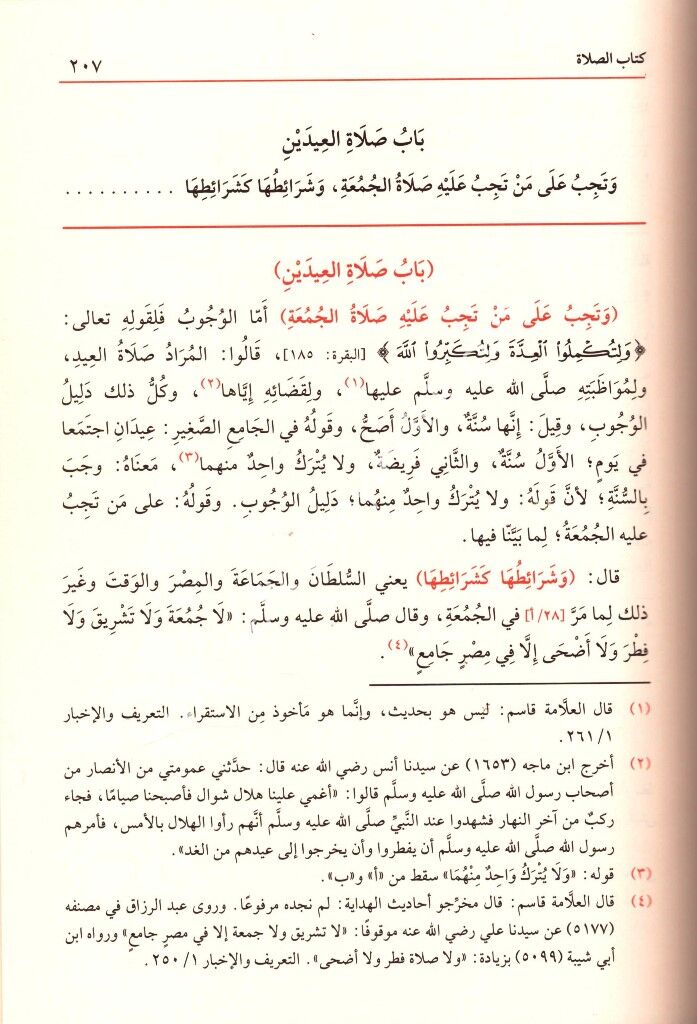 كتاب الصلاة ٢٠٧
بَابُ صَلَاةِ العِيدَيْنِ
وَتَجِبُ عَلَى مَنْ تَجِبُ عَلَيْهِ صَلَاةُ الجُمُعَةِ، وَشَرَائِطُهَا كَشَرَائِطِهَا . . . . . . . . . .
(بَابُ صَلَاةِ العِيدَيْنِ)
(وَتَجِبُ عَلَى مَنْ تَجِبُ عَلَيْهِ صَلَاةُ الجُمُعَةِ) أَمَّا الوُجُوبُ فَلِقَولِهِ تعالى:
﴿وَلِتُكْمِلُوا۟ ٱلْعِدَّةَ وَلِتُكَبِّرُوا۟ ٱللَّهَ﴾ [البقرة: ١٨٥]، قَالُوا: المُرَادُ صَلَاةُ العِيدِ،
ولِمُوَاظَبَتِهِ صلَّى الله عليه وسلَّم عليها(١)، ولِقَضَائِهِ إيَّاها(٢)، وكُلُّ ذلك دَلِيلُ
الوُجُوبِ، وقِيلَ: إنَّها سُنَّةٌ، والأَوَّلُ أَصَحُّ، وقَولُهُ في الجَامِعِ الصَّغِيرِ: عِيدَانِ اجتَمَعا
في يَومٍ؛ الأَوَّلُ سُنَّةٌ، والثَّانِي فَرِيضَةٌ، ولا يُتْرَكُ واحِدٌ منهما(٣)، مَعنَاهُ: وجَبَ
بِالسُّنَّةِ؛ لأنَّ قَولَهُ: ولا يُتْرَكُ واحِدٌ مِنهُما؛ دَلِيلُ الوُجُوبِ. وقَولُهُ: على مَن تَجِبُ
عليه الجُمُعَةُ؛ لِما بَيَّنّا فيها.
قال: (وَشَرَائِطُهَا كَشَرَائِطِهَا) يعني السُّلطَانَ والجَمَاعَةَ والمِصْرَ والوَقتَ وغَيرَ
ذلك لِما مَرَّ [٢٨/أ] في الجُمُعَةِ، وقال صلَّى الله عليه وسلَّم: «لَا جُمُعَةَ وَلَا تَشْرِيقَ وَلَا
فِطْرَ وَلَا أَضْحَى إِلَّا فِي مِصْرٍ جَامِعٍ»(٤).
(١) قال العلَّامة قاسم: ليس هو بحديث، وإنَّما هو مَأخوذ مِن الاستقراء. التعريف والإخبار
٢٦١/١.
(٢) أخرج ابن ماجه (١٦٥٣) عن سيدنا أنس رضي الله عنه قال: حدَّثني عمومتي من الأنصار من
أصحاب رسول الله صلَّى الله عليه وسلَّم قالوا: «أغمي علينا هلال شوال فأصبحنا صيامًا، فجاء
ركبٌ من آخر النهار فشهدوا عند النبيِّ صلَّى الله عليه وسلَّم أنَّهم رأوا الهلال بالأمس، فأمرهم
رسول الله صلَّى الله عليه وسلَّم أن يفطروا وأن يخرجوا إلى عيدهم من الغد».
(٣) قوله: «وَلَا يُتْرَكُ وَاحِدٌ مِنْهُمَا» سقط من «أ» و«ب».
(٤) قال العلَّامة قاسم: قال مخرِّجو أحاديث الهداية: لم نجده مرفوعًا. وروى عبد الرزاق في مصنفه
(٥١٧٧) عن سيدنا علي رضي الله عنه موقوفًا: «لا تشريق ولا جمعة إلا في مصرٍ جامع» ورواه ابن
أبي شيبة (٥٠٩٩) بزيادة: «ولا صلاة فطر ولا أضحى». التعريف والإخبار ٢٥٠/١.